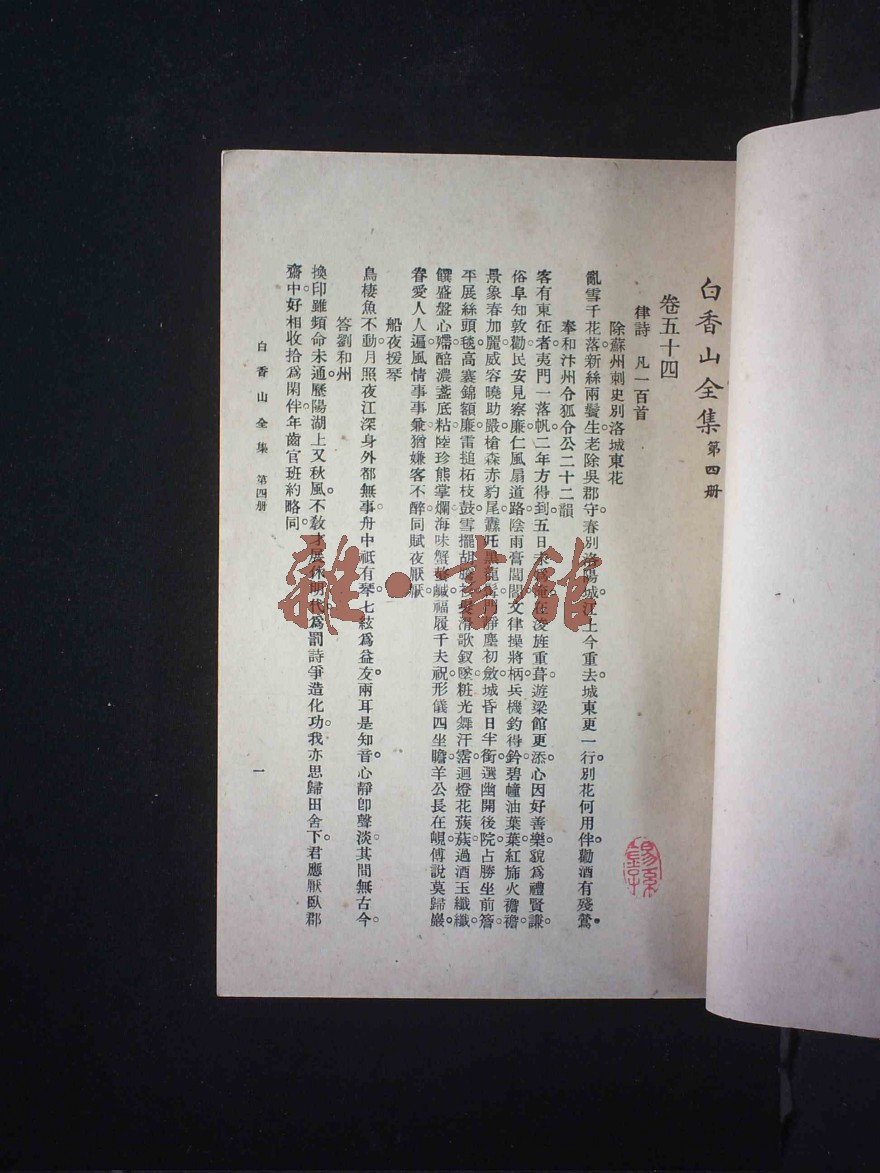 白香山全集 第四册
卷五十四
律詩 凡一百首
除蘇州刺史別洛城東花
亂雪千花落。新絲兩鬢生。老除吳郡守。春別洛陽城。江上今重去。城東更一行。別花何用伴。勸酒有殘鶯。
奉和汴州令狐令公二十二韻
客有東征者。夷門一落帆。二年方得到。五日未爲淹。在浚旌重葺。遊梁館更添。心因好善樂。貌爲禮賢謙。
俗阜知敦勸。民安見察廉。仁風扇道路。陰雨膏閭閻。文律操將柄。兵機釣得鈐。碧幢油葉葉。紅旆火襜襜。
景象春加麗。威容曉助嚴。槍森赤豹尾。纛吒黑龍髯。門靜塵初斂。城昏日半銜。選幽開後院。占勝坐前簷。
平展絲頭毯。高褰錦額廉。雷搥柘枝鼓。雪擺胡騰衫。髮滑歌釵墜。粧光舞汗霑。迴燈花蔟蔟。過酒玉纖纖。
饌盛盤心殢。醅濃盞底粘。陸珍熊掌爛。海味蟹螯鹹。福履千夫祝。形儀四坐瞻。羊公長在峴。傅說莫歸巖。
眷愛人人遍。風情事事兼。猶嫌客不醉。同賦夜厭厭。
船夜援琴
鳥棲魚不動。月照夜江深。身外都無事。舟中祗有琴。七絃爲益友。兩耳是知音。心靜卽聲淡。其間無古今。
答劉和州
換印雖頻命未通。歷陽湖上又秋風。不敎才展休明代。爲罰詩爭造化功。我亦思歸田舍下。君應厭臥郡
齋中。好相收拾爲閑伴。年齒官班約略同。
白香山全集 第四册
一
雜·書館